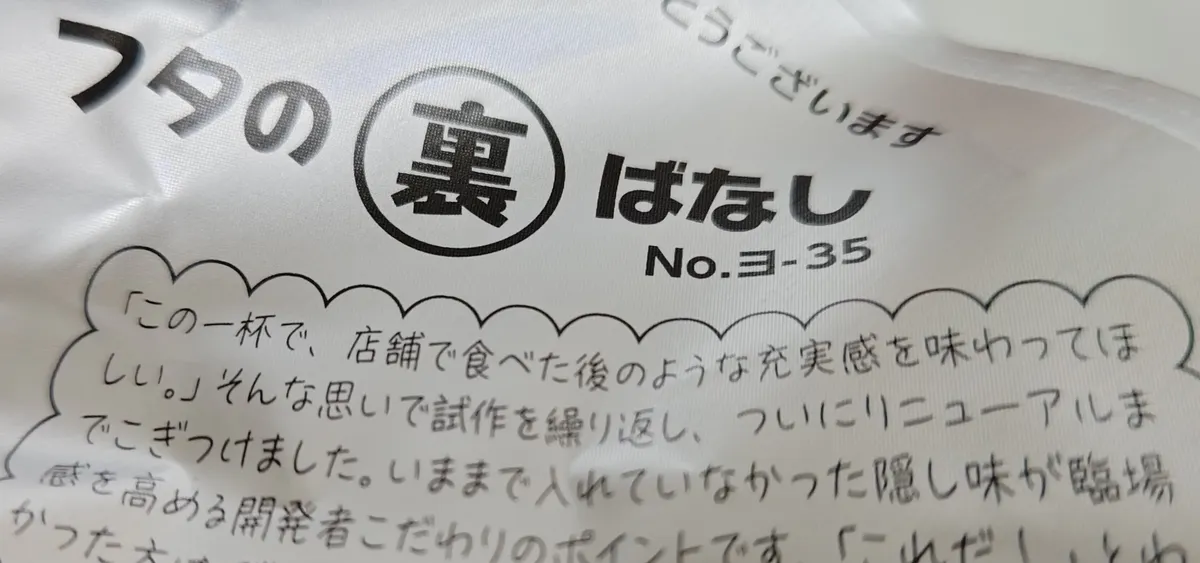 とうございます
フタの裏ばなし
No.ヨ-35
「この一杯で、店舗で食べた後のような充実感を味わってほ
しい。」そんな思いで試作を繰り返し、ついにリニューアルま
でこぎつけました。いままで入れていなかった隠し味が臨場
感を高める開発者こだわりのポイントです。「これだ!」とわ
かった方は